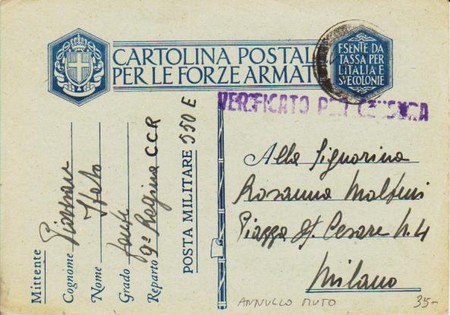 CARTOLINA POSTALE
PER LE FORZE ARMATE
ESENTE DA
TASSA PER
L'ITALIA E
SVE COLONIE
VERIFICATO PER CENSURA
Mittente
Cognome
Nome Italo
Grado
Reparto 9ª Regina C.C.R
POSTA MILITARE 550 E
Alla Signorina
Rosanna
Piazza G. Cesare N. 4
Milano
ANNULLO MUTO
35-